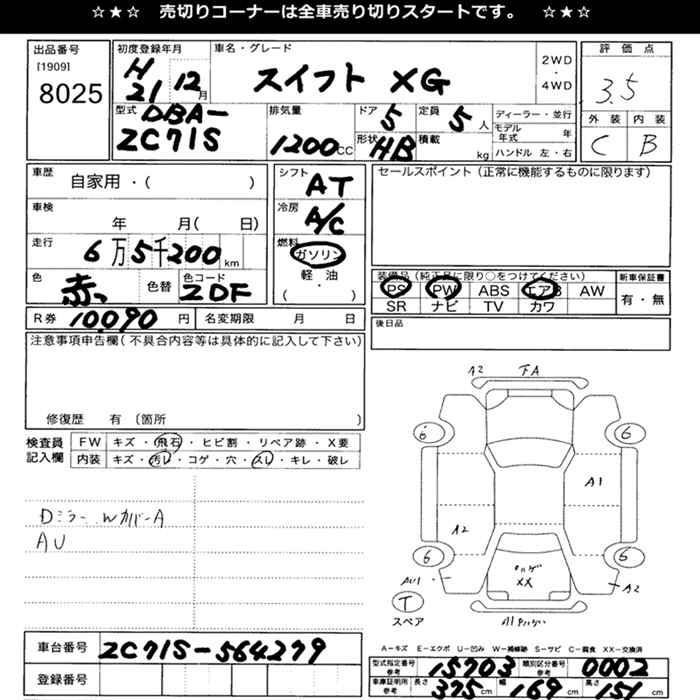 ☆★☆ 売切りコーナーは全車売り切りスタートです。 ☆★☆
出品番号
[1909]
8025
初度登録年月
H 21 12 月
車名・グレード
スイフト XG
2WD
・
4WD
評価点
3.5
外装 内装
C B
型式 DBA-
ZC71S
排気量
1200 CC
ドア 5
形状 HB
定員 5 人
積載 kg
ディーラー・並行
モデル年式 年
ハンドル 左・右
車歴
自家用・( )
車検
年 月( 日)
走行
6万5千200 km
色
赤
色替
色コード
ZDF
シフト
AT
冷房
A/C
燃料
ガソリン
軽・油
( ・ )
セールスポイント(正常に機能するものに限ります)
装備品(純正品に限り○をつけてください)
PS PW ABS エアB AW
SR ナビ TV カワ
新車保証書
有・無
R券 10,090 円 名変期限 月 日
後日品
注意事項申告欄(不具合内容等は具体的に記入して下さい)
修復歴 有(箇所
検査員
記入欄
FW キズ・飛石・ヒビ割・リペア跡・X要
内装 キズ・汚レ・コゲ・穴・スレ・キレ・破レ
Dミラー Wカバー A
AU
A2
6 6
A1
A2
6 6
XX
A2
T
スペア
A-キズ E-エクボ U-凹み W-補修跡 S-サビ C-腐食 XX-交換済
車台番号 ZC71S-564279
登録番号
型式指定番号
参考
15703
類別区分番号
参考
0002
車庫証明用
参考
長さ 375 cm 幅 169 cm 高さ 151 cm